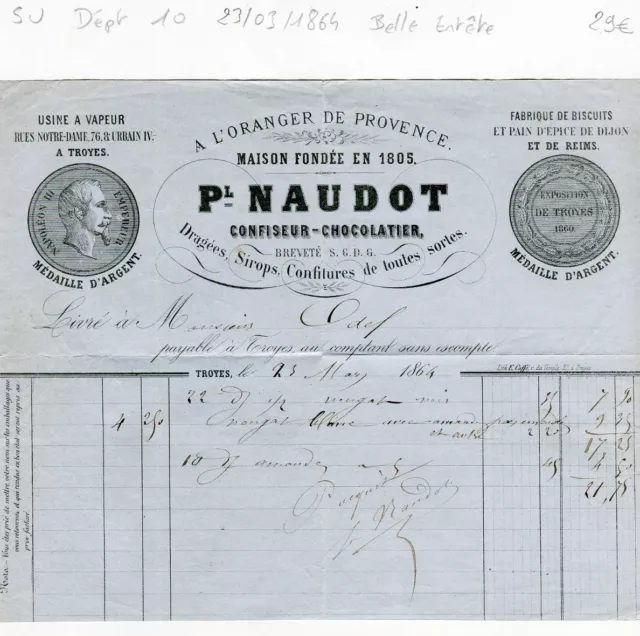 SU Dépt 10 23/03/1864 Belle Entête 29€
USINE A VAPEUR
RUES NOTRE-DAME, 76, & URBAIN IV.
A TROYES.
NAPOLEON III EMPEREUR
MÉDAILLE D'ARGENT.
A L'ORANGER DE PROVENCE.
MAISON FONDÉE EN 1805.
PL NAUDOT
CONFISEUR-CHOCOLATIER,
BREVETÉ S.G.D.G.
Dragées, Sirops, Confitures de toutes sortes.
FABRIQUE DE BISCUITS
ET PAIN D'ÉPICE DE DIJON
ET DE REIMS.
EXPOSITION
DE TROYES
1860.
MÉDAILLE D'ARGENT.
Livré à Monsieur
payable à Troyes, au comptant sans escompte.
TROYES, le 23 Mars 1864
22 nougat 35 7
4 250 nougat blanc avec 9 35
17 25
10 amande 45 4 50
21,75
Naudot
Nota.- Vous êtes prié de mettre votre nom sur les emballages que
vous retournez, et que rendus en bon état seront repris au
prix facturé.